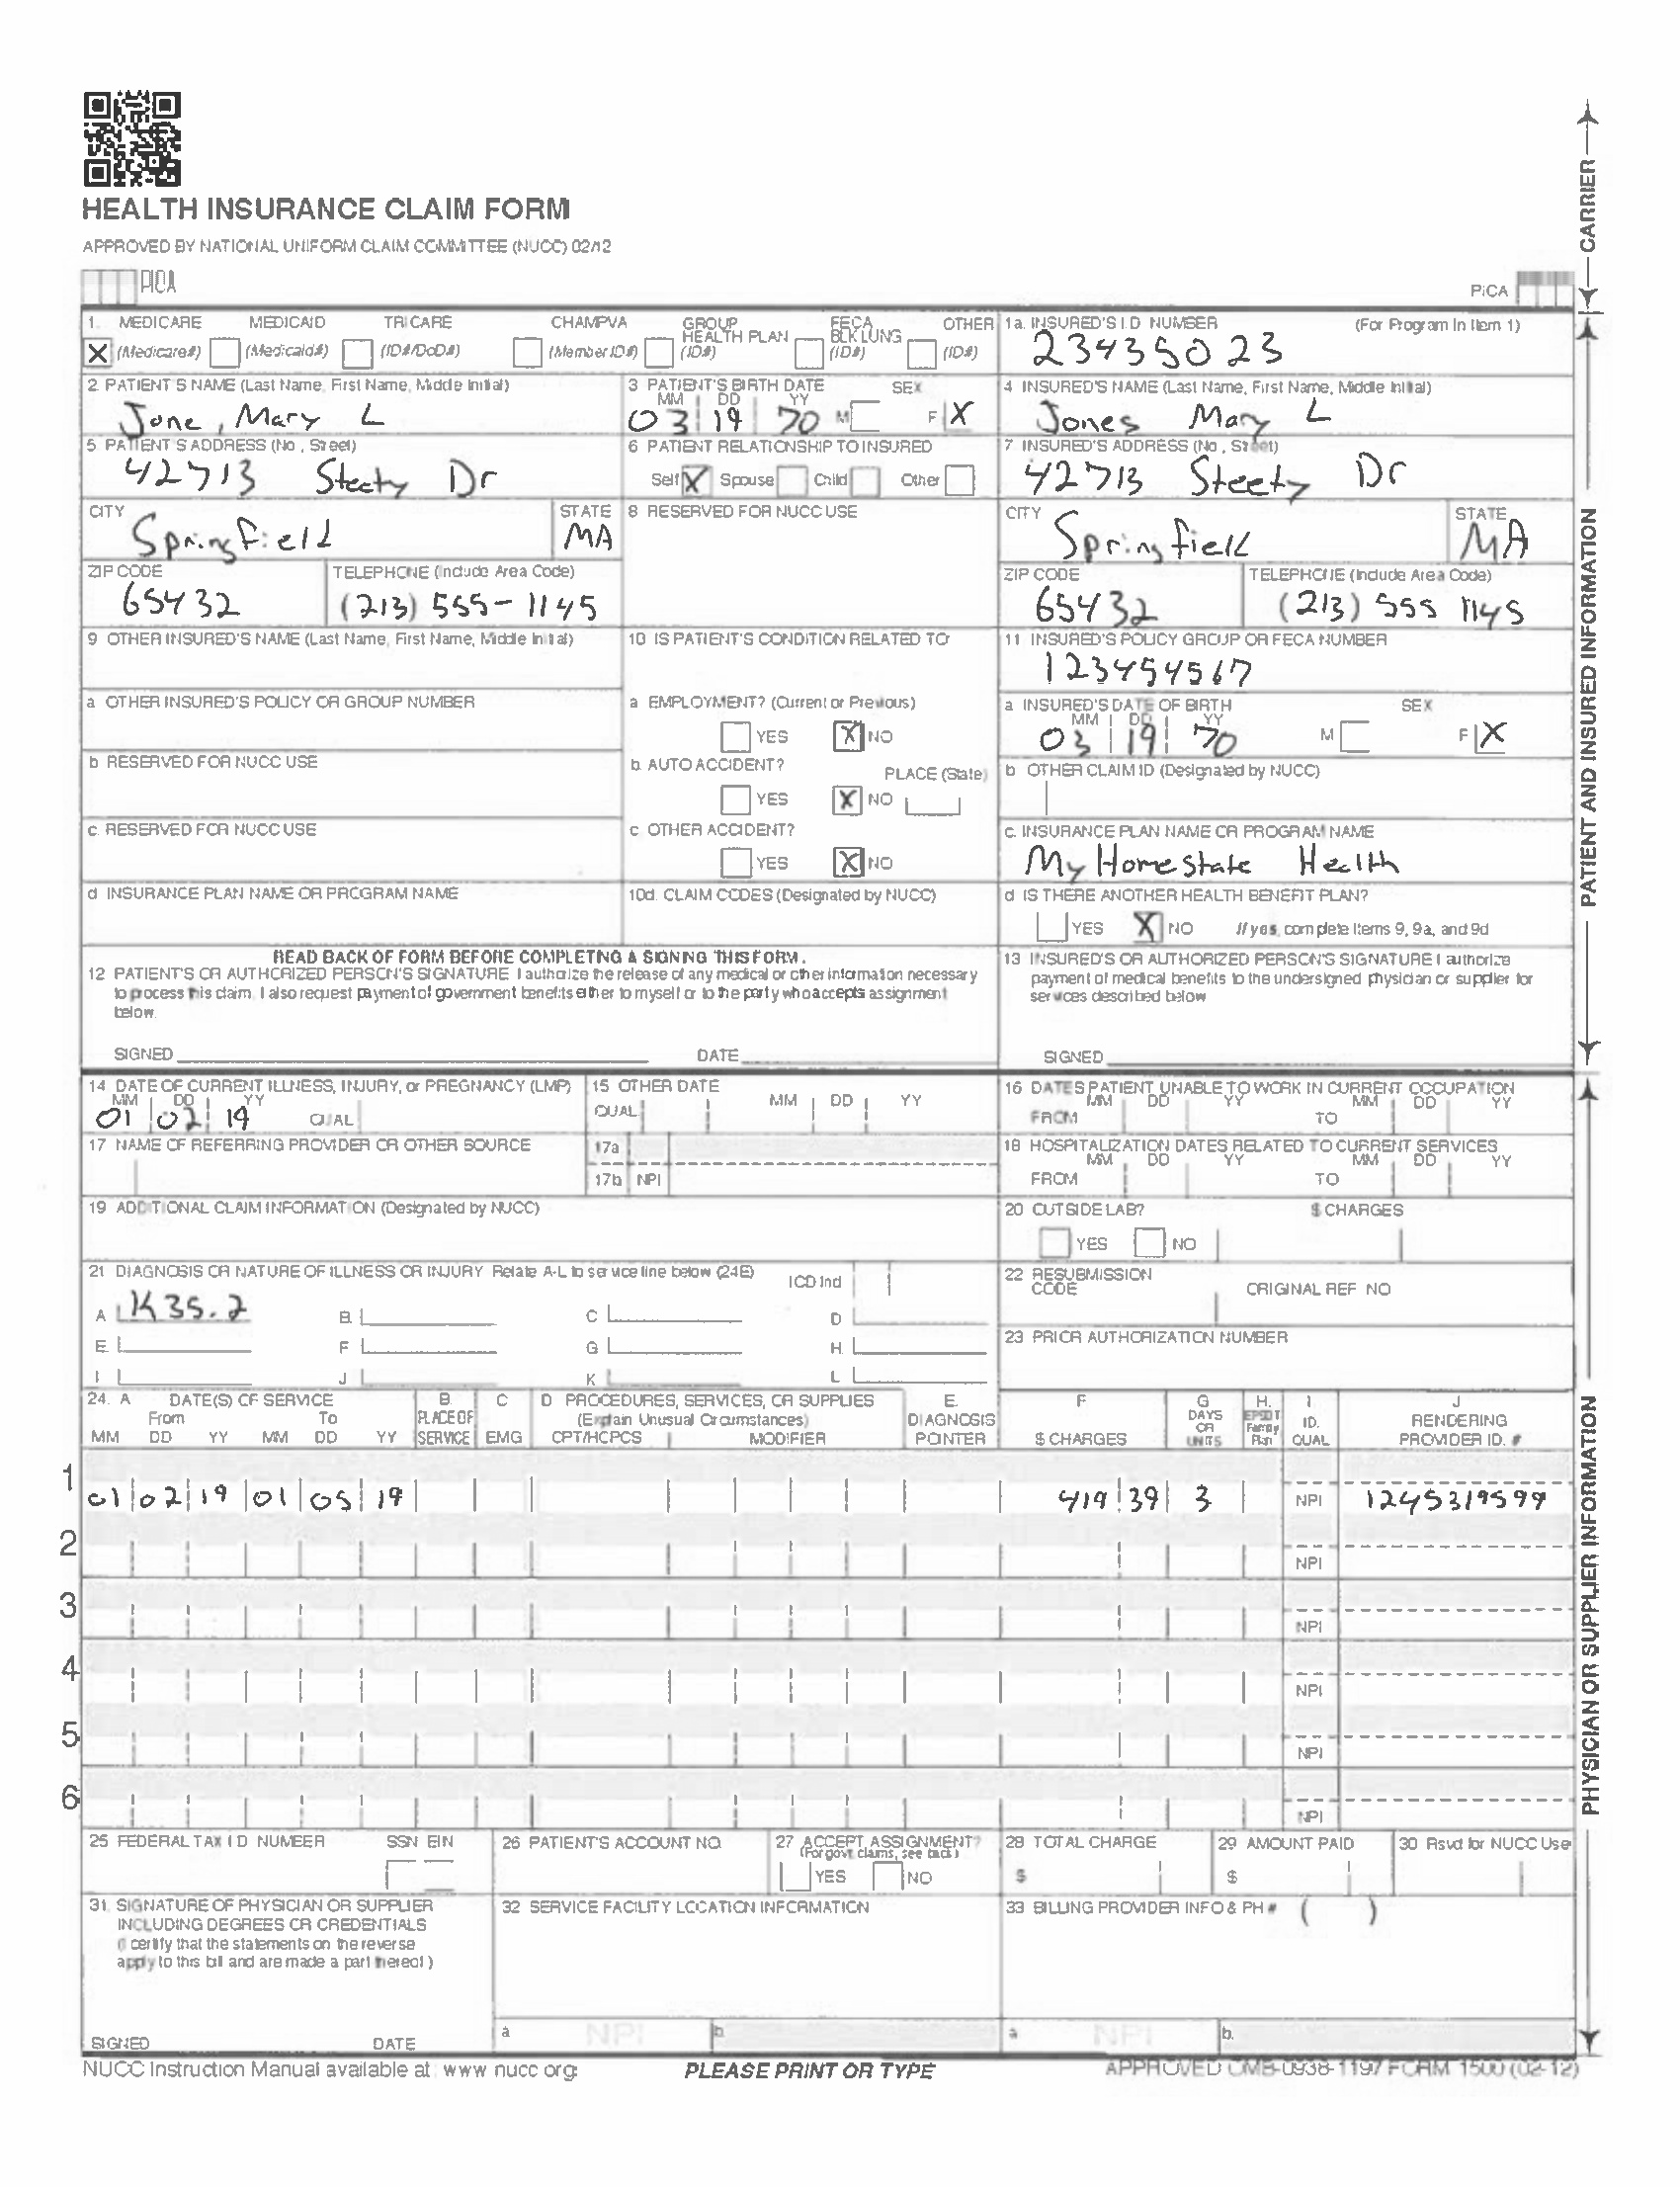 HEALTH INSURANCE CLAIM FORM
APPROVED BY NATIONAL UNIFORM CLAIM COMMITTEE (NUCC) 02/12
PICA
PICA
CARRIER
1. MEDICARE MEDICAID TRICARE CHAMPVA GROUP HEALTH PLAN FECA BLK LUNG OTHER
X (Medicare#) (Medicaid#) (ID#/DoD#) (Member ID#) (ID#) (ID#) (ID#)
1a. INSURED'S I.D. NUMBER (For Program In Item 1)
23435023
2 PATIENT'S NAME (Last Name, First Name, Middle Initial)
Jone, Mary L
3 PATIENT'S BIRTH DATE SEX
MM DD YY
03 19 70 M F X
4 INSURED'S NAME (Last Name, First Name, Middle Initial)
Jones Mary L
5 PATIENT'S ADDRESS (No, Street)
42713 Steety Dr
6 PATIENT RELATIONSHIP TO INSURED
Self X Spouse Child Other
7 INSURED'S ADDRESS (No, Street)
42713 Steety Dr
CITY STATE
Springfield MA
8 RESERVED FOR NUCC USE
CITY STATE
Springfield MA
ZIP CODE TELEPHONE (Include Area Code)
65432 (213) 555-1145
ZIP CODE TELEPHONE (Include Area Code)
65432 (213) 555 1145
9 OTHER INSURED'S NAME (Last Name, First Name, Middle Initial)
10 IS PATIENT'S CONDITION RELATED TO
11 INSURED'S POLICY GROUP OR FECA NUMBER
123454567
a OTHER INSURED'S POLICY OR GROUP NUMBER
a EMPLOYMENT? (Current or Previous)
YES X NO
a INSURED'S DATE OF BIRTH SEX
MM DD YY
03 19 70 M F X
b RESERVED FOR NUCC USE
b. AUTO ACCIDENT? PLACE (State)
YES X NO
b OTHER CLAIM ID (Designated by NUCC)
c. RESERVED FOR NUCC USE
c OTHER ACCIDENT?
YES X NO
c. INSURANCE PLAN NAME OR PROGRAM NAME
My Home State Health
d INSURANCE PLAN NAME OR PROGRAM NAME
10d. CLAIM CODES (Designated by NUCC)
d IS THERE ANOTHER HEALTH BENEFIT PLAN?
YES X NO If yes, complete Items 9, 9a, and 9d
READ BACK OF FORM BEFORE COMPLETING & SIGNING THIS FORM.
12 PATIENT'S OR AUTHORIZED PERSON'S SIGNATURE I authorize the release of any medical or other information necessary
to process this claim. I also request payment of government benefits either to myself or to the party who accepts assignment
below.
SIGNED DATE
13 INSURED'S OR AUTHORIZED PERSON'S SIGNATURE I authorize
payment of medical benefits to the undersigned physician or supplier for
services described below
SIGNED
PATIENT AND INSURED INFORMATION
14 DATE OF CURRENT ILLNESS, INJURY, or PREGNANCY (LMP)
MM DD YY
01 02 19 QUAL
15 OTHER DATE
QUAL MM DD YY
16 DATES PATIENT UNABLE TO WORK IN CURRENT OCCUPATION
MM DD YY MM DD YY
FROM TO
17 NAME OF REFERRING PROVIDER OR OTHER SOURCE
17a
17b NPI
18 HOSPITALIZATION DATES RELATED TO CURRENT SERVICES
MM DD YY MM DD YY
FROM TO
19 ADDITIONAL CLAIM INFORMATION (Designated by NUCC)
20 OUTSIDE LAB? $ CHARGES
YES NO
21 DIAGNOSIS OR NATURE OF ILLNESS OR INJURY Relate A-L to service line below (24E) ICD Ind
A K35.2 B. C D
E. F G H.
I J K L
22 RESUBMISSION CODE ORIGINAL REF NO
23 PRIOR AUTHORIZATION NUMBER
24. A DATE(S) OF SERVICE B. C D PROCEDURES, SERVICES, OR SUPPLIES E. F G H. I J
From To PLACE OF (Explain Unusual Circumstances) DIAGNOSIS DAYS OR EPSDT Family ID. RENDERING
MM DD YY MM DD YY SERVICE EMG CPT/HCPCS MODIFIER POINTER $ CHARGES UNITS Plan QUAL PROVIDER ID. #
1
01 02 19 01 05 19 419 39 3 NPI 1245319599
2
NPI
3
NPI
4
NPI
5
NPI
6
NPI
25 FEDERAL TAX I D NUMBER SSN EIN
26 PATIENT'S ACCOUNT NO.
27 ACCEPT ASSIGNMENT?
(For govt. claims, see back)
YES NO
28 TOTAL CHARGE
$
29 AMOUNT PAID
$
30 Rsvd for NUCC Use
31. SIGNATURE OF PHYSICIAN OR SUPPLIER
INCLUDING DEGREES OR CREDENTIALS
(I certify that the statements on the reverse
apply to this bill and are made a part thereof.)
SIGNED DATE
32 SERVICE FACILITY LOCATION INFORMATION
a NPI b.
33 BILLING PROVIDER INFO & PH # ( )
a NPI b.
PHYSICIAN OR SUPPLIER INFORMATION
NUCC Instruction Manual available at: www nucc org
PLEASE PRINT OR TYPE
APPROVED OMB-0938-1197 FORM 1500 (02-12)